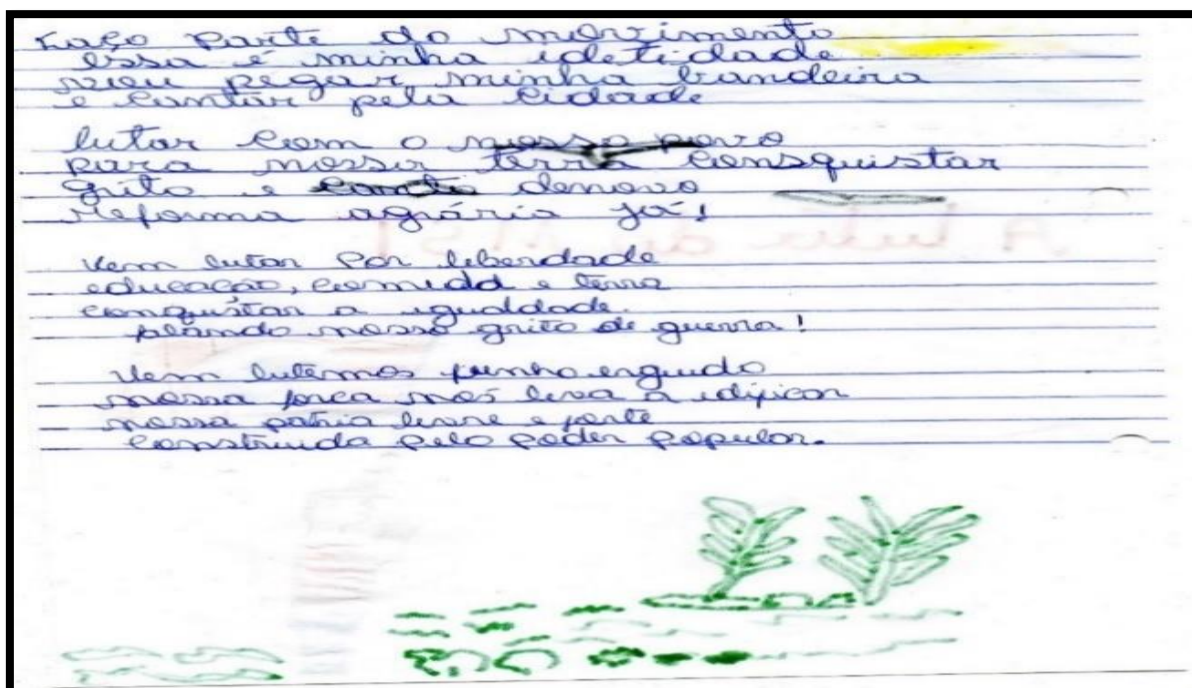 Faço parte do movimento
essa é minha idetidade
vieu pegar minha bandeira
e cantar pela cidade
lutar com o nosso povo
para nossa terra consquistar
grito e canto denovo
reforma agrária já!
Vem lutar por liberdade
educação, comidd e terra
conquistar a igualddade.
nosso grito de guerra!
Vem lutemos punho erguido
nossa força nos leva a edificar
nossa patria livre e forte
construida pelo poder popular.
A luta do MST